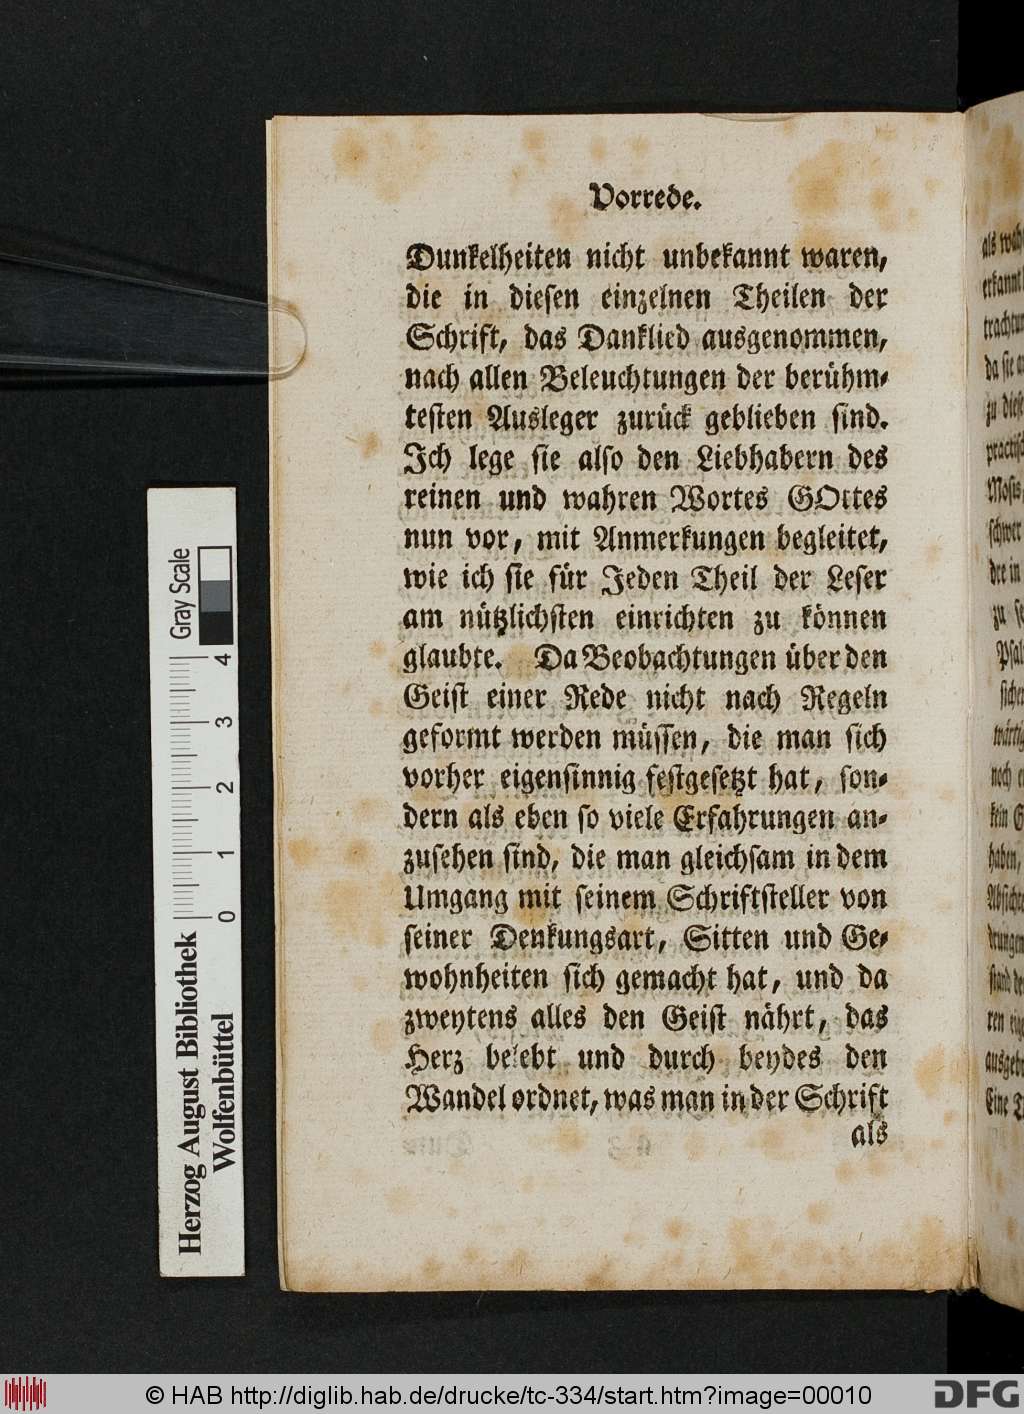 Vorrede.
Dunkelheiten nicht unbekannt waren,
die in dieſen einzelnen Theilen der
Schrift, das Danklied ausgenommen,
nach allen Beleuchtungen der berühm⸗
teſten Ausleger zurück geblieben ſind.
Ich lege ſie alſo den Liebhabern des
reinen und wahren Wortes GOttes
nun vor, mit Anmerkungen begleitet,
wie ich ſie für Jeden Theil der Leſer
am nützlichſten einrichten zu können
glaubte. Da Beobachtungen über den
Geiſt einer Rede nicht nach Regeln
geformt werden müſſen, die man ſich
vorher eigenſinnig feſtgeſetzt hat, ſon⸗
dern als eben ſo viele Erfahrungen an⸗
zuſehen ſind, die man gleichſam in dem
Umgang mit ſeinem Schriftſteller von
ſeiner Denkungsart, Sitten und Ge⸗
wohnheiten ſich gemacht hat, und da
zweytens alles den Geiſt nährt, das
Herz belebt und durch beydes den
Wandel ordnet, was man in der Schrift
als
als
erkannt
da ſie
zu
Moſis
ſchwer
in
zu
noch
kein
haben,
ren
Eine
Gray Scale
4
3
2
1
0
Herzog August Bibliothek
Wolfenbüttel
© HAB http://diglib.hab.de/drucke/tc-334/start.htm?image=00010
DFG